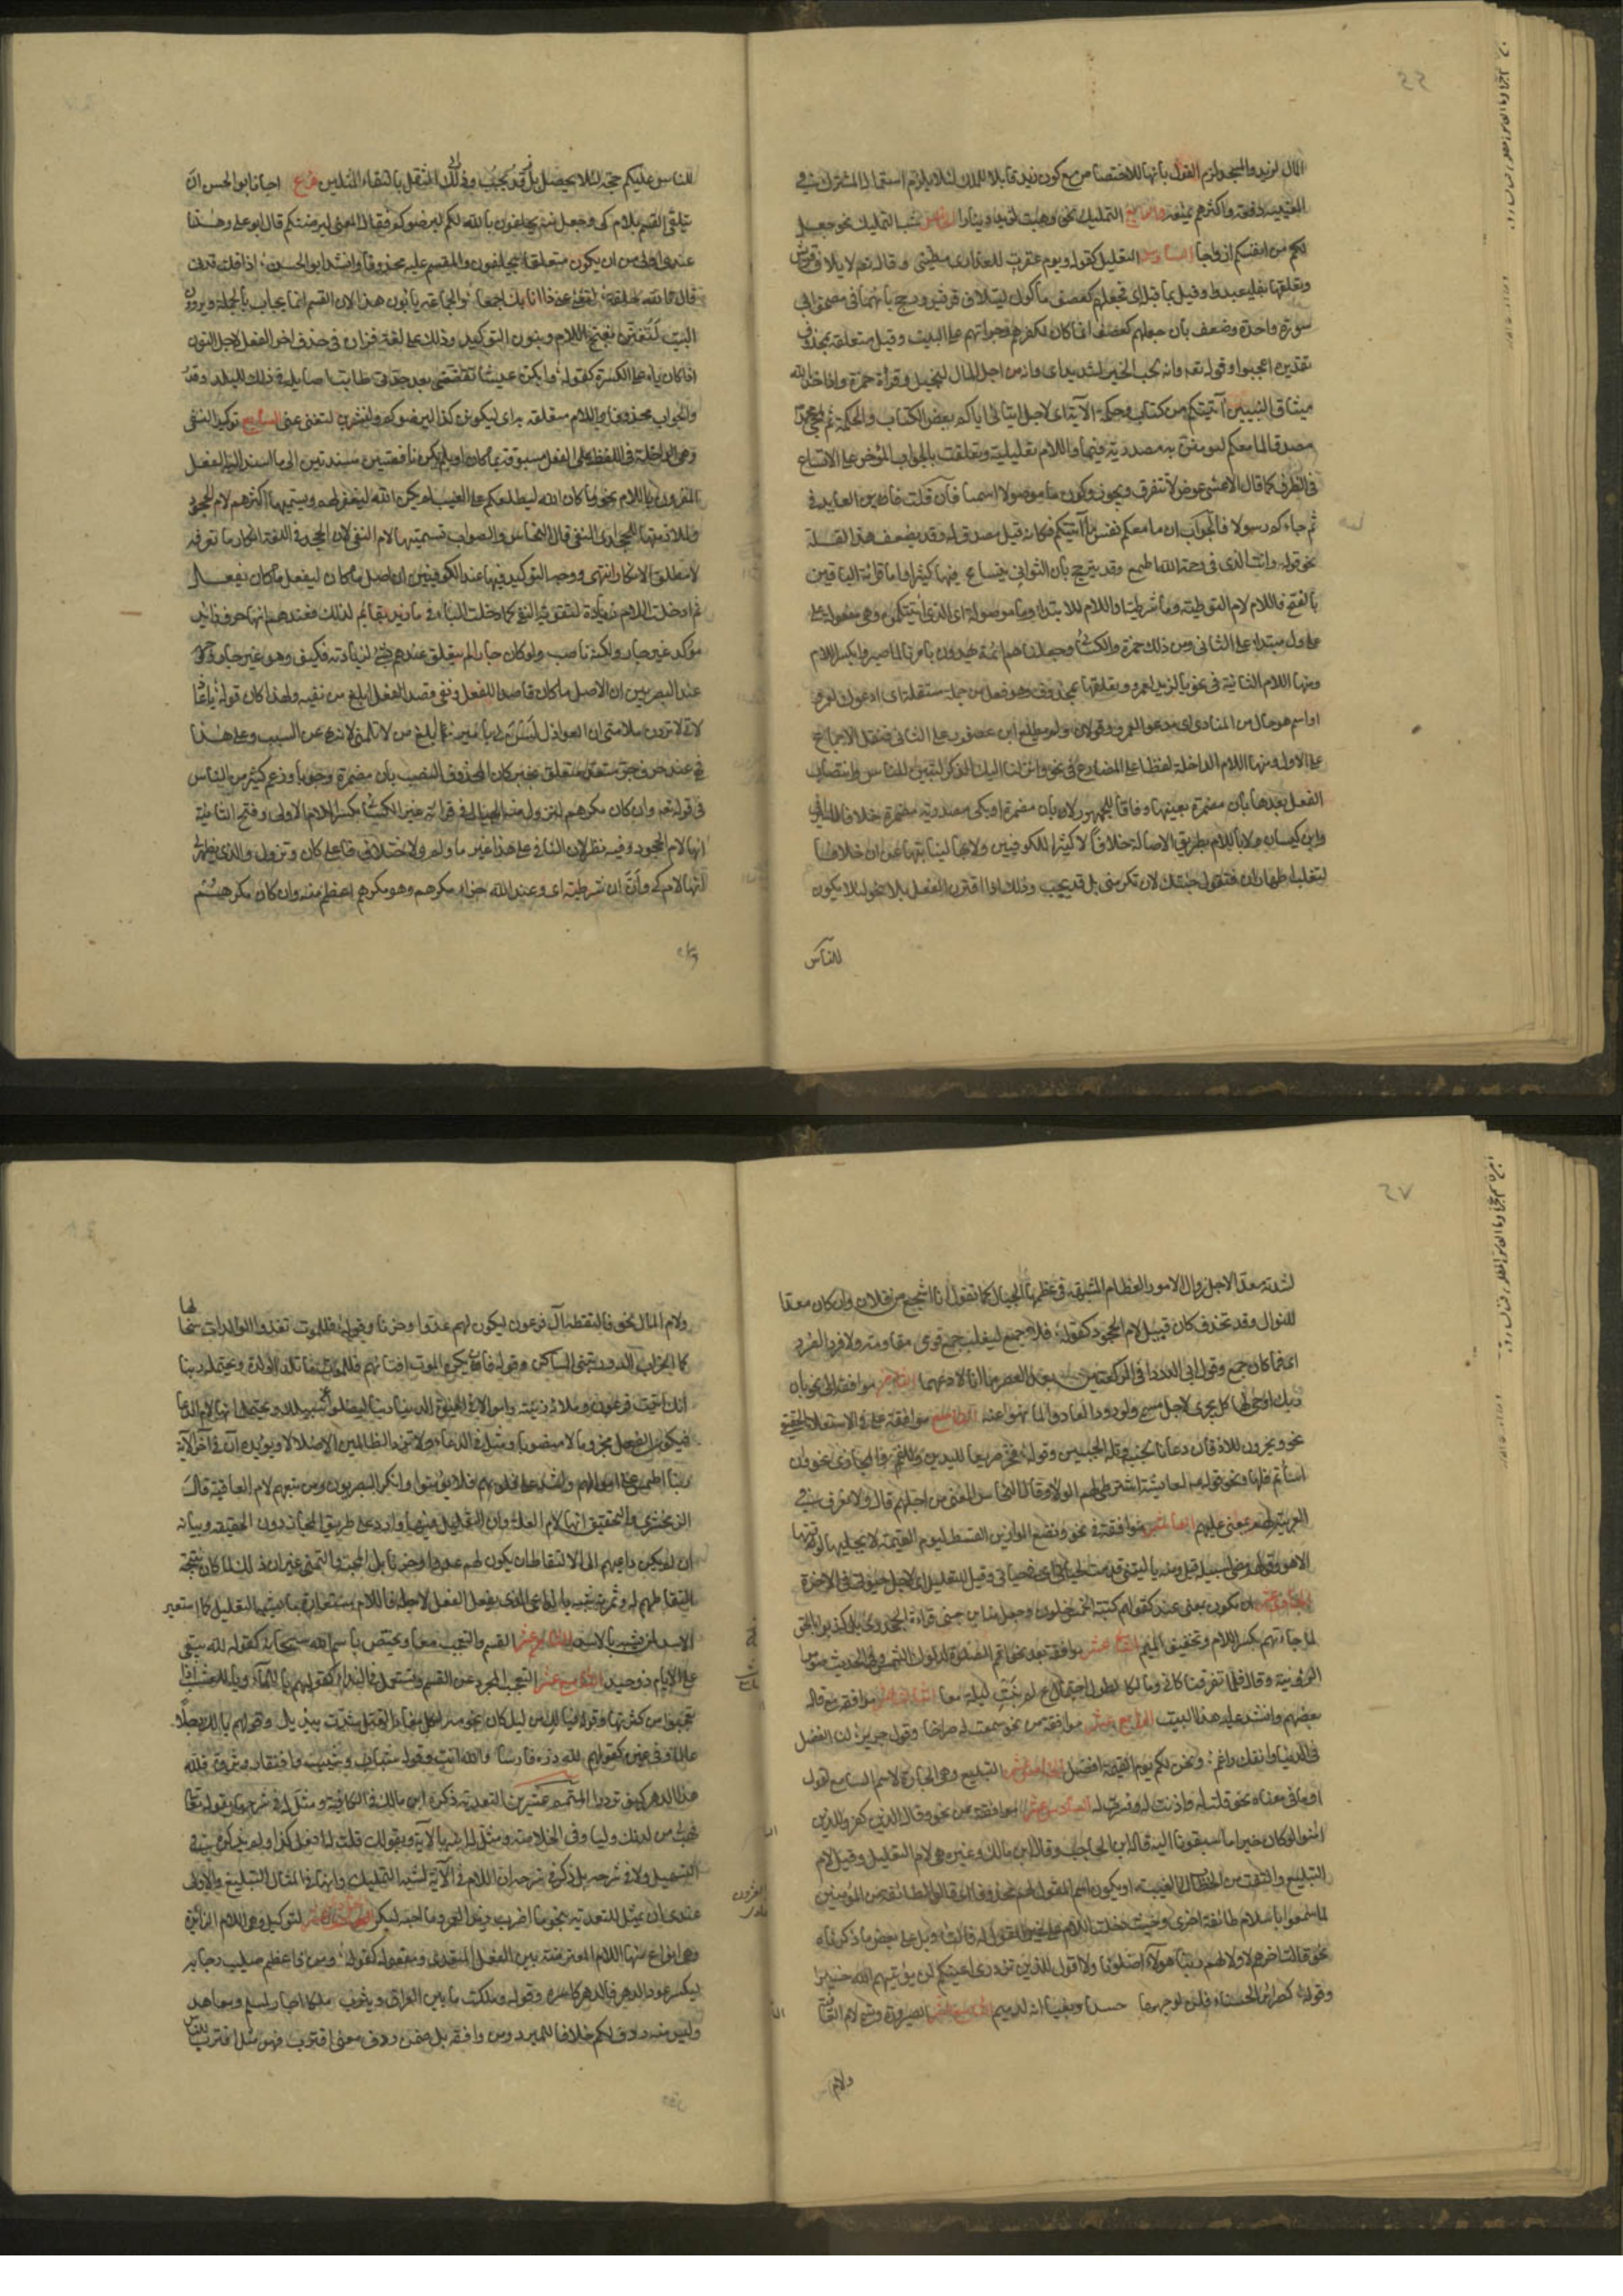 المال لزيد والمسجد لزم القول بأنها للاختصاص مع كون زيد قابلا للملك لئلا يلزم استعمال المشترك في
معنييه دفعة واكثرهم يمنعه والرابع التمليك نحو وهبت لزيد دينارا الخامس شبه التمليك نحو جعل
لكم من انفسكم ازواجا السادس التعليل كقوله ويوم عقرت للعذارى مطيتي وقوله تعالى لايلاف قريش
وتعلقها بفليعبدوا وقيل بما قبله اى فجعلهم كعصف مأكول لايلاف قريش ورجح بأنهما في مصحف ابي
سورة واحدة وضعف بأن جعلهم كعصف انما كان لكفرهم وجرأتهم على البيت وقيل متعلقة بمحذوف
تقديره اعجبوا وقوله تعالى وانه لحب الخير لشديد اى وانه من اجل المال لبخيل وقرأة حمزة واذ اخذ الله
ميثاق النبيين لما آتيتكم من كتاب وحكمة الآية اى لاجل ايتائى اياكم بعض الكتاب والحكمة ثم لمجئ محمد
مصدقا لما معكم لتؤمنن به فما مصدرية فيهما واللام تعليلية وتعلقت بالجواب المؤخر على الاتساع
في الظرف كما قال الاعشى عوض لا نتفرق ويجوز كون ما موصولا اسميا فان قلت فاين العايد في
ثم جاءكم رسول فالجواب ان ما معكم نفس ما آتيتكم فكانه قيل مصدق له وقد يضعف هذا لقلة
نحو قوله وانت الذى في رحمة الله اطمع وقد يرجح بأن الثواني يتساع فيها كثيرا واما قرائة الباقين
بالفتح فاللام لام التوطئة وما شرطية او اللام للابتداء وما موصولة اى الذى آتيتكموه وهي مفعولة على
الاول ومبتدأ على الثانى ومن ذلك قرأة حمزة والكسائى وجعلنا هم ائمة يهدون بامرنا لما صبروا بكسر اللام
ومنها اللام الثانية في نحو يا لزيد لعمرو وتعلقها بمحذوف وهو فعل من جملة مستقلة اى ادعوك لعمرو
او اسم هو حال من المنادى اى مدعوا لعمرو قولان ولم يطلع ابن عصفور على الثانى فنقل الاجماع
على الاول ومنها اللام الداخلة لفظا على المضارع في نحو وانزلنا اليك الذكر لتبين للناس وانتصاب
الفعل بعدها بأن مضمرة بعينها وفاقا للجمهور لا بأن مضمرة او بكى مصدرية مضمرة خلافا للسيرافي
وابن كيسان ولا باللام بطريق الاصالة خلافا لاكثر الكوفيين ولا بها لنيابتها عن ان خلافا
لثعلب ولك اظهار ان فتقول جئتك لان تكرمنى بل قد يجب وذلك اذا اقترن الفعل بلا نحو لئلا يكون
للناس
للناس عليكم حجة لئلا يحصل الثقل بالتقاء المثلين فرع اجاز ابو الحسن ان
يتلقى القسم بلام كى وجعل منه يحلفون بالله لكم ليرضوكم فقال المعنى ليرضنكم قال ابو على وهذا
عندى اولى من ان يكون متعلقا بيحلفون والمقسم عليه محذوف وانشد ابو الحسن اذا قلت قدنى
قال بالله حلفة لتغنى عنى ذا انائك اجمعا والجماعة يأبون هذا لان القسم انما يجاب بالجملة ويروون
البيت لتغنن بفتح اللام ونون التوكيد وذلك على لغة فزارة في حذف اخر الفعل لاجل النون
اذا كان ياء تلى الكسرة كقوله وابكن عيشا تقضى بعد جدته طابت اصايله في ذلك البلد وقد
والجواب محذوف واللام متعلقة به اى ليكونن كذا ليرضوكم ولتشربن لتغنى عنى السابع توكيد النفى
وهى الداخلة في اللفظ على الفعل مسبوقة بما كان او بلم يكن ناقصتين مسندتين الى ما اسند اليه الفعل
المقرون باللام نحو وما كان الله ليطلعكم على الغيب لم يكن الله ليغفر لهم ويسميها اكثرهم لام الجحود
لملازمتها للجحد اى النفى قال النحاس والصواب تسميتها لام النفى لان الجحد في اللغة انكار ما تعرفه
لا مطلق الانكار انتهى ووجه التوكيد فيها عند الكوفيين ان اصل ما كان ليفعل ما كان يفعل
ثم ادخلت اللام زيادة لتقوية النفى كما ادخلت الباء في ما زيد بقائم لذلك فعندهم انها حرف زائد
مؤكد غير جار ولكنه ناصب ولو كان جارا لم يتعلق عندهم بشئ لزيادته فكيف وهو غير جار ووجهه
عند البصريين ان الاصل ما كان قاصدا للفعل ونفى قصد الفعل ابلغ من نفيه ولهذا كان قوله يا عاذ
لاتى لا تردن ملامتى ان العواذل لسن لى بأمير ابلغ من لا تلمنى لانه نهى عن السبب وعلى هذا
فهى عندهم حرف جر متعلق بخبر كان المحذوف والنصب بأن مضمرة وجوبا وزعم كثير من الناس
في قوله تعالى وان كان مكرهم لتزول منه الجبال في قرائة غير الكسائى بكسر اللام الاولى وفتح الثانية
انها لام الجحود وفيه نظر لان النافي على هذا غير ما ولم ولاختلاف فاعلى كان وتزول والذى يظهر لى
انها لام كى وان ان شرطية اى وعند الله جزاء مكرهم وهو مكر اعظم منه وان كان مكرهم
لشدته معدا لاجل زوال الامور العظام المشبهة في عظمها بالجبال كما تقول انا اشجع من فلان وان كان معدا
للنوازل وقد تحذف كان قبل لام الجحود كقوله فما جمع ليغلب جمع قومى مقاومة ولا فرد لفرد
اى فما كان جمع وقول ابى الدرداء في الركعتين بعد العصر ما انا لادعهما الثامن موافقة الى نحو بأن
ربك اوحى لها كل يجرى لاجل مسمى ولو ردوا لعادوا لما نهوا عنه التاسع موافقة على في الاستعلاء الحقيقى
نحو ويخرون للاذقان دعانا لجنبه وتله للجبين وقوله فخر صريعا لليدين وللفم والمجازى نحو وان
اسأتم فلها ونحو قوله لعائشة اشترطى لهم الولاء وقال النحاس المعنى من اجلهم قال ولا نعرف في
العربية لهم بمعنى عليهم العاشر موافقة في نحو ونضع الموازين القسط ليوم القيمة لا يجليها لوقتها
الا هو وقولهم مضى لسبيله قيل ومنه يا ليتنى قدمت لحياتى اى في حياتى وقيل للتعليل اى لاجل حيوتى في الاخرة
الحادى عشر ان تكون بمعنى عند كقولهم كتبته لخمس خلون وجعل منه ابن جنى قراءة الجحدرى بل كذبوا بالحق
لما جاءهم بكسر اللام وتخفيف الميم الثانى عشر موافقة بعد نحو اقم الصلوة لدلوك الشمس وفي الحديث صوموا
لرؤيته وقال فلما تفرقنا كانى ومالكا لطول اجتماع لم نبت ليلة معا الثالث عشر موافقة مع قاله
بعضهم وانشد عليه هذا البيت الرابع عشر موافقة من نحو سمعت له صراخا وقول جرير لنا الفضل
في الدنيا وانفك راغم ونحن لكم يوم القيمة افضل الخامس عشر التبليغ وهى الجارة لاسم السامع لقول
او ما في معناه نحو قلت له واذنت له وفسرت له السادس عشر موافقة عن نحو وقال الذين كفروا للذين
امنوا لو كان خيرا ما سبقونا اليه قاله ابن الحاجب وقال ابن مالك وغيره هى لام التعليل وقيل لام
التبليغ والتفت عن الخطاب الى الغيبة او يكون اسم المقول لهم محذوفا اى قالوا لطائفة من المؤمنين
لما سمعوا باسلام طائفة اخرى وحيث دخلت اللام على غير المقول له فالتأويل على بعض ما ذكرناه
نحو قالت اخراهم لاولاهم ربنا هؤلاء اضلونا ولا اقول للذين تزدرى اعينكم لن يؤتيهم الله خيرا
وقوله كضرائر الحسناء قلن لوجهها حسدا وبغيا انه لدميم السابع عشر الصيرورة وتسمى لام العاقبة
ولام
ولام المال نحو فالتقطه آل فرعون ليكون لهم عدوا وحزنا وقوله فللموت تغذو الوالدات سخالها
كما لخراب الدور تبنى المساكن وقوله فان يكن الموت افناهم فللموت ما تلد الوالدة ويحتمله ربنا
انك آتيت فرعون وملأه زينة واموالا في الحيوة الدنيا ربنا ليضلوا عن سبيلك ويحتمل انها لام الدعاء
فيكون الفعل مجزوما لا منصوبا ومثله في الدعاء ولا تزد الظالمين الا ضلالا ويؤيده ان في آخر الآية
ربنا اطمس على اموالهم واشدد على قلوبهم فلا يؤمنوا وانكر البصريون ومن تبعهم لام العاقبة قال
الزمخشرى والتحقيق انها لام العلة وان التعليل فيها وارد على طريق المجاز دون الحقيقة وبيانه
انه لم يكن داعيهم الى الالتقاط ان يكون لهم عدوا وحزنا بل المحبة والتبنى غير ان ذلك لما كان نتيجة
التقاطهم له وثمرته شبه بالداعى الذى يفعل الفعل لاجله فاللام مستعارة لما يشبه التعليل كما استعير
الاسد لمن يشبه الاسد الثامن عشر القسم والتعجب معا وتختص باسم الله سبحانه كقوله لله يبقى
على الايام ذو حيد التاسع عشر التعجب المجرد عن القسم وتستعمل في النداء كقولهم يا للماء ويا للعشب اذا
تعجبوا من كثرتهما وقوله فيا لك من ليل كان نجومه بكل مغار الفتل شدت بيذبل وقولهم يا لك رجلا
عالما وفي غيره كقولهم لله دره فارسا ولله انت وقوله شباب وشيب وافتقار وثروة فلله
هذا الدهر كيف ترددا المتمم عشرين التعدية ذكره ابن مالك في الكافية ومثل له في شرحها بقوله تعالى
فهب لى من لدنك وليا وفي الخلاصة ومثل له ابنه بالآية وبقولك قلت له افعل كذا ولم يذكره في
التسهيل ولا في شرحه بل ذكر في شرحه ان اللام في الآية لشبه التمليك وانها في المثال للتبليغ والاولى
عندى ان يمثل للتعدية بنحو ما اضرب زيدا لعمرو وما احبه لبكر الحادى والعشرون التوكيد وهى اللام الزائدة
وهى انواع منها اللام المعترضة بين الفعل المتعدى ومفعوله كقوله ومن يك ذا عظم صليب رجا به
ليكسر عود الدهر فالدهر كاسره وقوله وملكت ما بين العراق ويثرب ملكا اجار لمسلم ومعاهد
وليس منه ردف لكم خلافا للمبرد ومن وافقه بل ضمن ردف معنى اقترب فهو مثل اقترب للناس